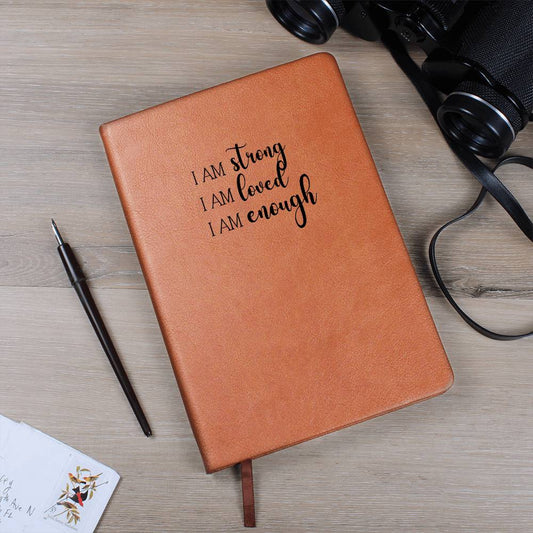 I AM strong
I AM loved
I AM enough